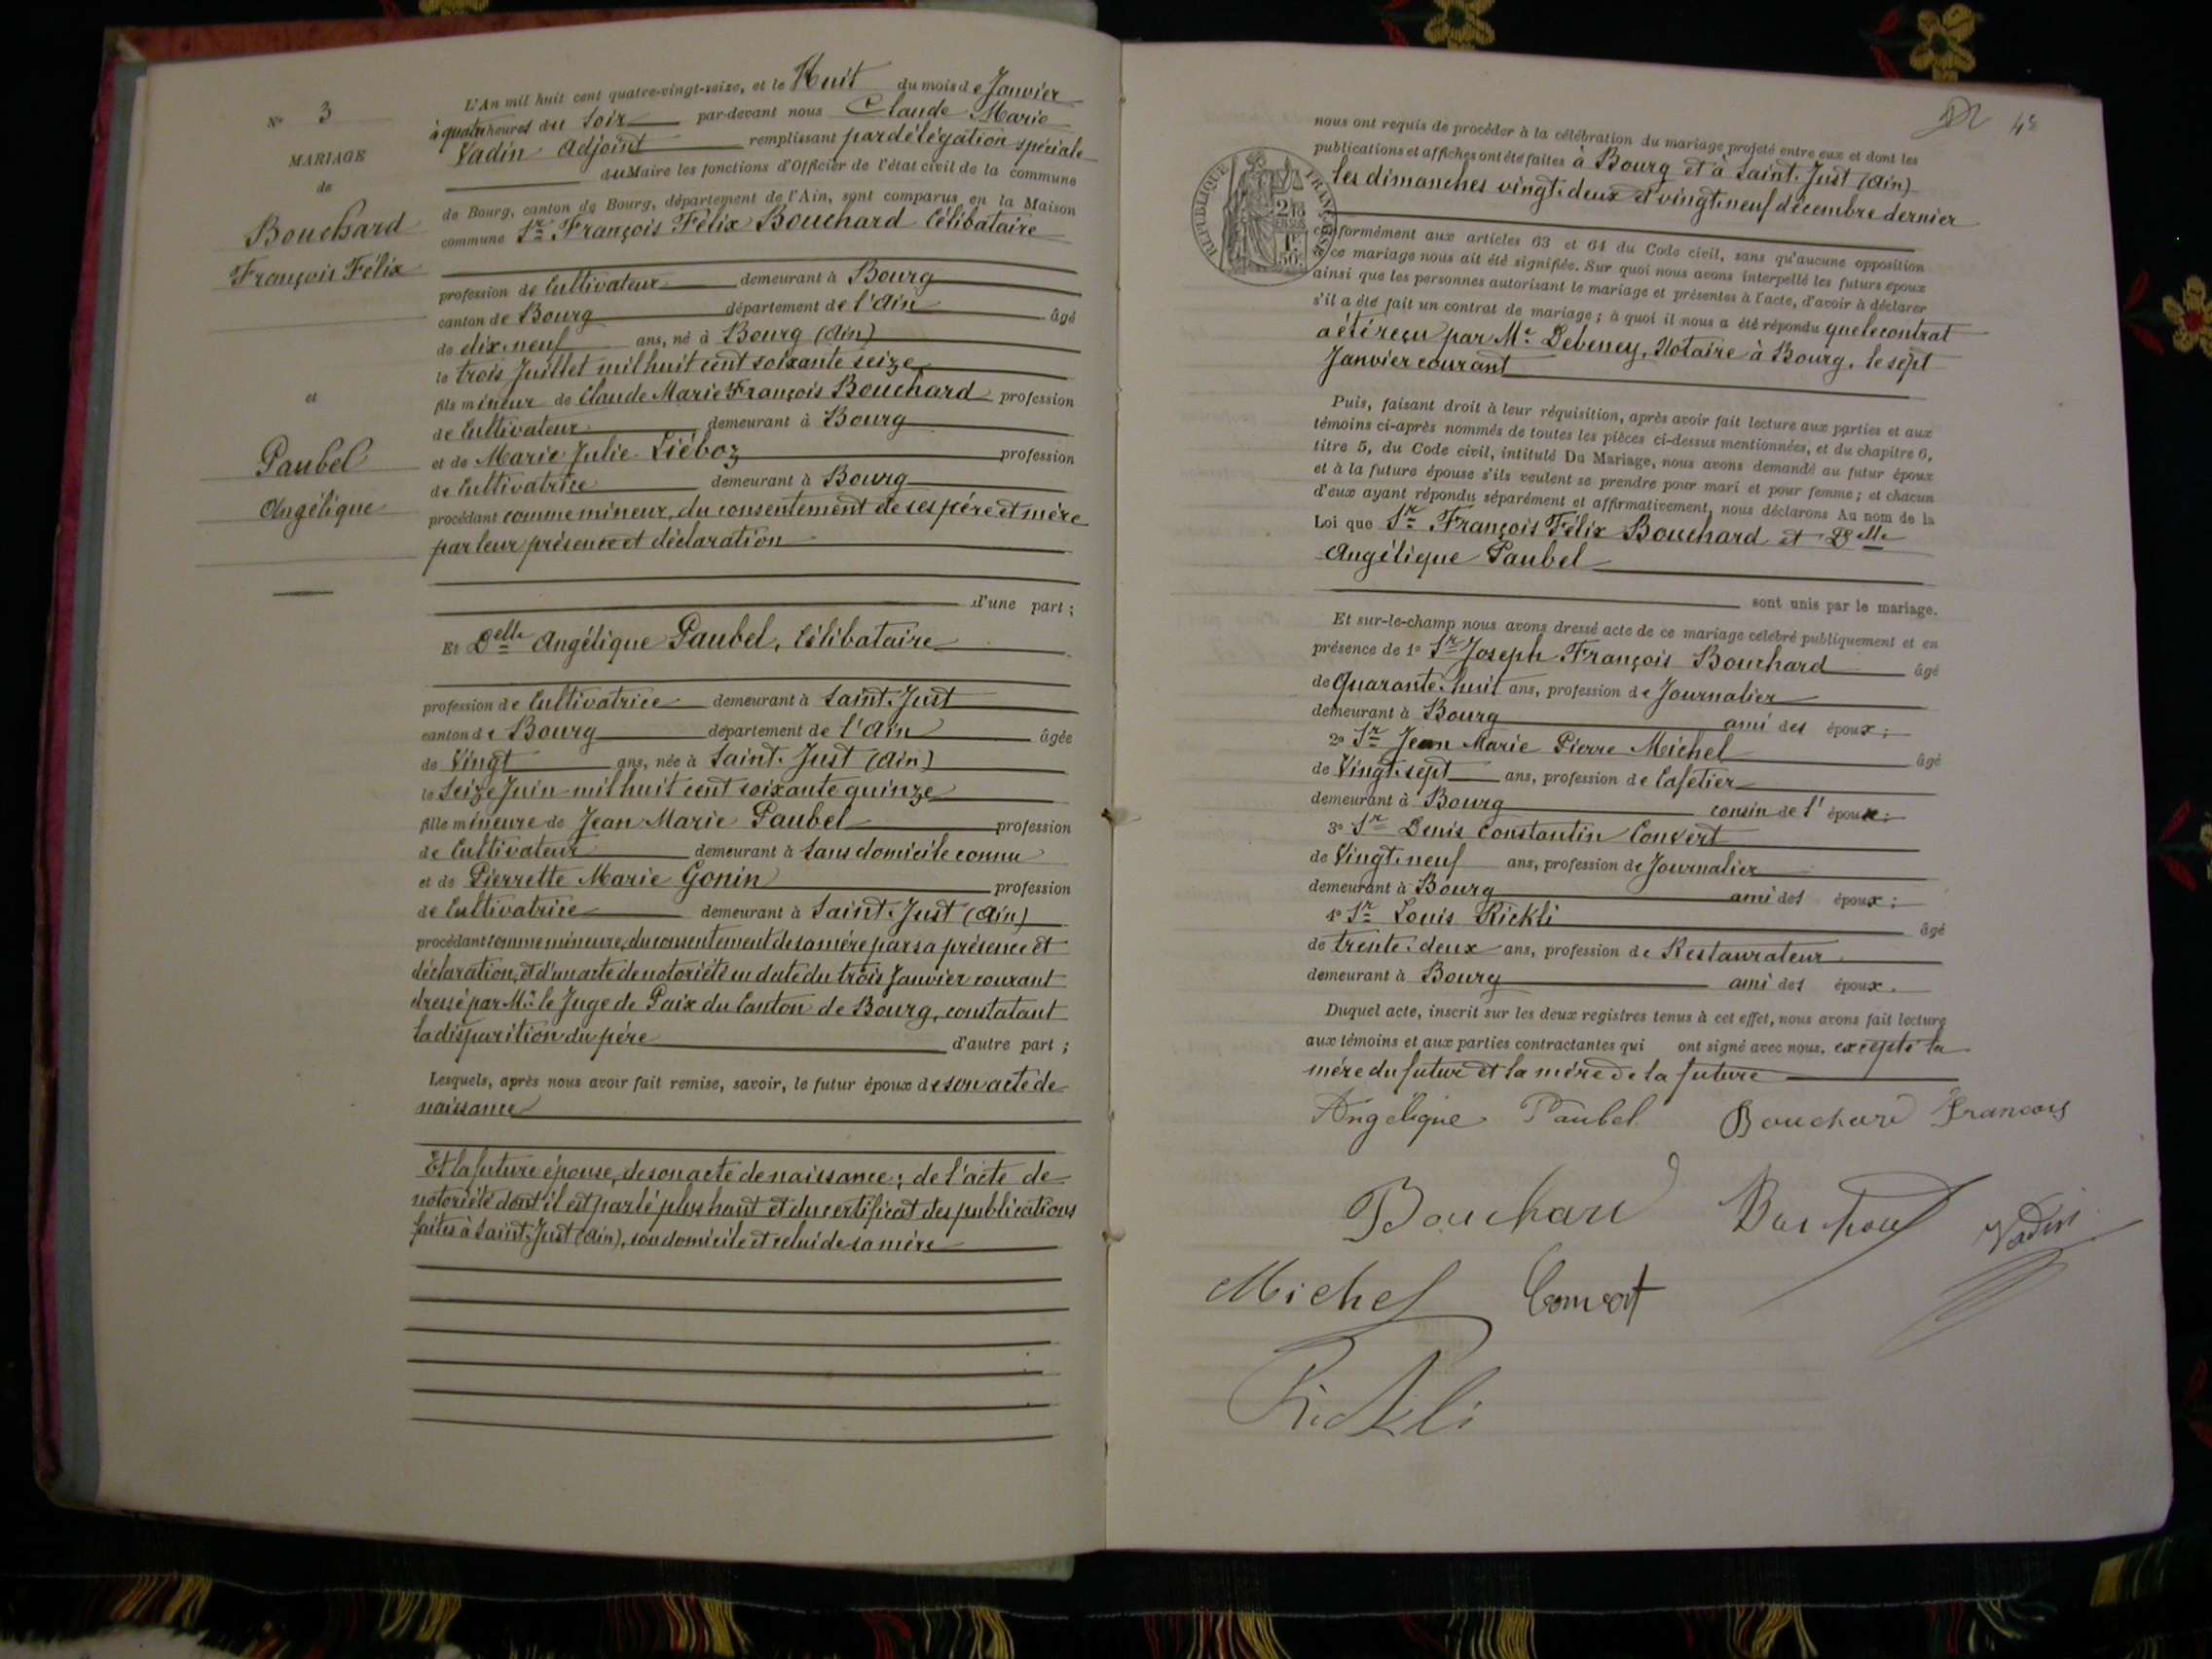 N° 3
MARIAGE
de
Bouchard
François Félix
et
Paubel
Angélique
L'An mil huit cent quatre-vingt-seize, et le Huit du mois de Janvier
à quatre heures du Soir par-devant nous Claude Marie
Vadin Adjoint remplissant par délégation spéciale
du Maire les fonctions d'Officier de l'état civil de la commune
de Bourg, canton de Bourg, département de l'Ain, sont comparus en la Maison
commune Sr François Félix Bouchard Célibataire
profession de Cultivateur demeurant à Bourg
canton de Bourg département de l'Ain âgé
de dix-neuf ans, né à Bourg (Ain)
le trois Juillet mil huit cent soixante seize
fils mineur de Claude Marie François Bouchard profession
de Cultivateur demeurant à Bourg
et de Marie Julie Liéboz profession
de Cultivatrice demeurant à Bourg
procédant comme mineur, du consentement de ses père et mère
par leur présence et déclaration
d'une part ;
Et Delle Angélique Paubel, Célibataire
profession de Cultivatrice demeurant à Saint-Just
canton de Bourg département de l'Ain âgée
de Vingt ans, née à Saint-Just (Ain)
le Seize Juin mil huit cent soixante quinze
fille mineure de Jean Marie Paubel profession
de Cultivateur demeurant à Sans domicile connu
et de Pierrette Marie Gonin profession
de Cultivatrice demeurant à Saint-Just (Ain)
procédant comme mineure, du consentement de sa mère par sa présence et
déclaration, et d'un acte de notoriété en date du trois Janvier courant
dressé par Mr le Juge de Paix du Canton de Bourg, constatant
la disparition du père d'autre part ;
Lesquels, après nous avoir fait remise, savoir, le futur époux de son acte de
naissance
Et la future épouse, de son acte de naissance ; de l'acte de
notoriété dont il est parlé plus haut et du certificat des publications
faites à Saint-Just (Ain), son domicile et celui de sa mère
4e
nous ont requis de procéder à la célébration du mariage projeté entre eux et dont les
publications et affiches ont été faites à Bourg et à Saint-Just (Ain)
les dimanches vingt-deux et vingt-neuf décembre dernier
REPUBLIQUE FRANÇAISE
conformément aux articles 63 et 64 du Code civil, sans qu'aucune opposition
à ce mariage nous ait été signifiée. Sur quoi nous avons interpellé les futurs époux
ainsi que les personnes autorisant le mariage et présentes à l'acte, d'avoir à déclarer
s'il a été fait un contrat de mariage ; à quoi il nous a été répondu que le contrat
a été reçu par Me Debeney, Notaire à Bourg, le sept
Janvier courant
Puis, faisant droit à leur réquisition, après avoir fait lecture aux parties et aux
témoins ci-après nommés de toutes les pièces ci-dessus mentionnées, et du chapitre 6,
titre 5, du Code civil, intitulé Du Mariage, nous avons demandé au futur époux
et à la future épouse s'ils veulent se prendre pour mari et pour femme ; et chacun
d'eux ayant répondu séparément et affirmativement, nous déclarons Au nom de la
Loi que Sr François Félix Bouchard et Delle
Angélique Paubel
sont unis par le mariage.
Et sur-le-champ nous avons dressé acte de ce mariage célébré publiquement et en
présence de 1° Sr Joseph François Bouchard âgé
de Quarante-huit ans, profession de Journalier
demeurant à Bourg ami des époux ;
2° Sr Jean Marie Pierre Michel âgé
de Vingt-sept ans, profession de Cafetier
demeurant à Bourg cousin de l'époux ;
3° Sr Denis Constantin Convert
de Vingt-neuf ans, profession de Journalier
demeurant à Bourg ami des époux ;
4° Sr Louis Rickli âgé
de trente-deux ans, profession de Restaurateur
demeurant à Bourg ami des époux.
Duquel acte, inscrit sur les deux registres tenus à cet effet, nous avons fait lecture
aux témoins et aux parties contractantes qui ont signé avec nous, excepté la
mère du futur et la mère de la future
Angélique Paubel Bouchard François
Bouchard Vadin
Michel Convert
Rickli